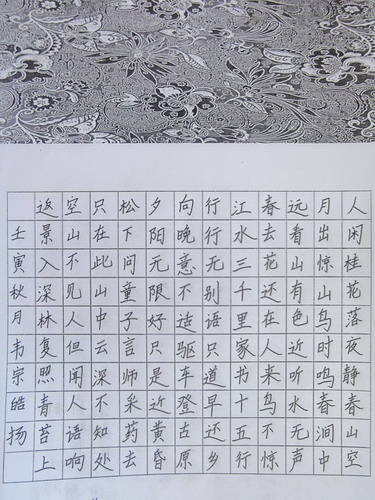 人闲桂花落夜静春山空
月出惊山鸟时鸣春涧中
远看山有色近听水无声
春去花还在人来鸟不惊
江水三千里家书十五行
行行无别语只道早还乡
向晚意不适驱车登古原
夕阳无限好只是近黄昏
松下问童子言师采药去
只在此山中云深不知处
空山不见人但闻人语响
返景入深林复照青苔上
壬寅秋月韦宗皓扬